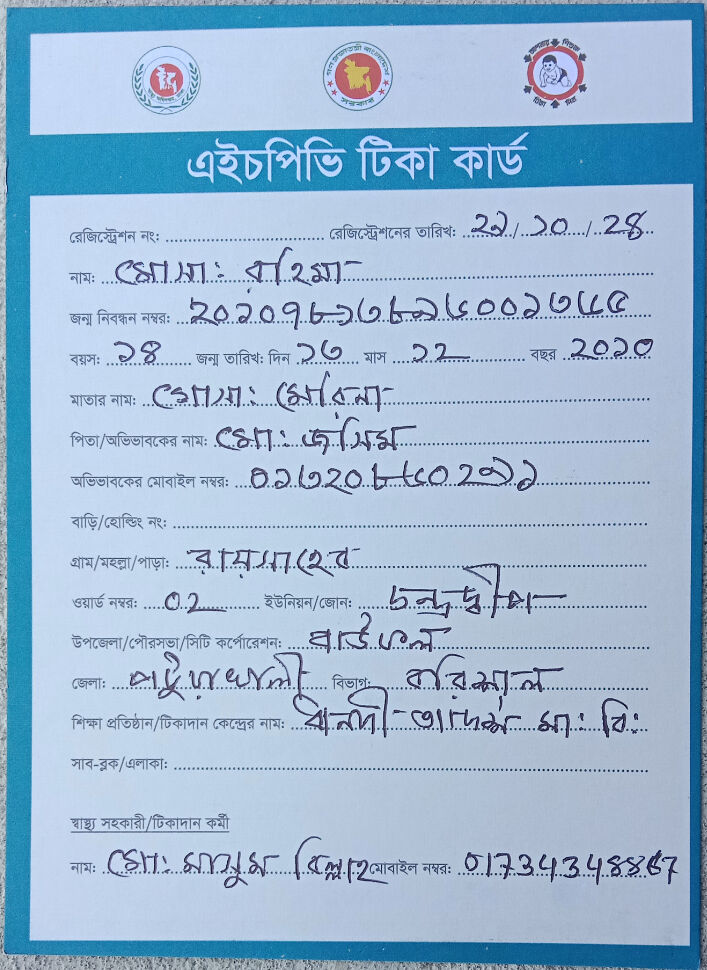 গণপ্রজাতন্ত্রী বাংলাদেশ
সরকার
এইচপিভি টিকা কার্ড
রেজিস্ট্রেশন নং: রেজিস্ট্রেশনের তারিখ: ২৯/১০/২৪
নাম: মোসা: রহিমা
জন্ম নিবন্ধন নম্বর: ২০১০৭৮১৩৮৯৫০০১৩৫৫
বয়স: ১৪ জন্ম তারিখ: দিন ১৩ মাস ১২ বছর ২০১০
মাতার নাম: মোসা: মোরিনা
পিতা/অভিভাবকের নাম: মো: জসিম
অভিভাবকের মোবাইল নম্বর:
বাড়ি/হোল্ডিং নং:
গ্রাম/মহল্লা/পাড়া: রায়সাহেব
ওয়ার্ড নম্বর: ০২ ইউনিয়ন/জোন: চন্দ্রদ্বীপ
উপজেলা/পৌরসভা/সিটি কর্পোরেশন: বাউফল
জেলা: পটুয়াখালী বিভাগ: বরিশাল
শিক্ষা প্রতিষ্ঠান/টিকাদান কেন্দ্রের নাম: আদর্শ মা: বি:
সাব-ব্লক/এলাকা:
স্বাস্থ্য সহকারী/টিকাদান কর্মী
নাম: মো: মাসুম বিল্লাহ মোবাইল নম্বর: